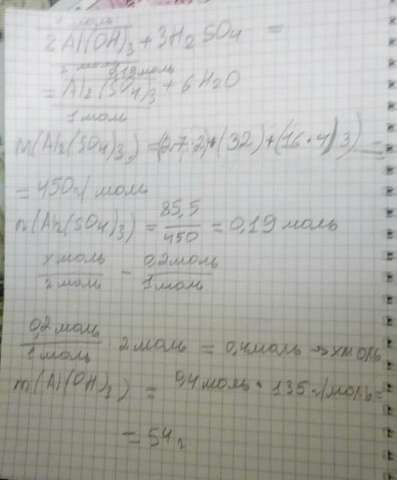 2Al(OH)₃ + 3H₂SO₄ =
0,19моль
= Al₂(SO₄)₃ + 6H₂O
1 моль
m(Al₂(SO₄)₃) = (27·2)+(32)+(16·4)3) =
= 450г/моль
n(Al₂(SO₄)₃) = 85,5/450 = 0,19 моль
x моль/2 моль – 0,2моль/1 моль
0,2моль/1 моль 2моль = 0,4моль → x моль
m(Al(OH)₃) = 94моль · 135г/моль=
= 54г